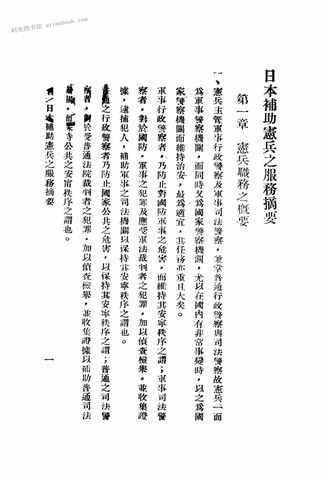 日本補助憲兵之服務摘要
第一章 憲兵職務之概要
一、憲兵主管軍事行政警察及軍事司法警察，兼掌普通行政警察與司法警察故憲兵一面
為軍事警察機關，而同時又為國家警察機關，尤以在國內有非常事變時，以之為國
家警察機關而維持治安，最為適宜，其任務亦重且大矣。
軍事行政警察者，乃防止對國防軍事之危害，而維持其安寧秩序之謂也；軍事司法警
察者，對於國防，軍事之犯罪及應受軍法裁判者之犯罪，加以偵查檢舉，並收集證
據，逮捕犯人，補助軍事之司法機關以保持其安寧秩序之謂也。
普通之行政警察者乃防止國家公共之危害，以保持其安寧秩序之謂；普通之司法警
察者，對於受普通法院裁判者之犯罪，加以偵查檢舉，並收集證據以補助普通司法
公共之安甯秩序之謂也。
日本補助憲兵之服務摘要
一